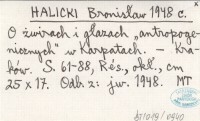 HALICKI Bronisław 1948 c.
O żwirach i głazach „antropoge-
nicznych" w Karpatach. – Kra-
ków. S. 61-88, Rés., okł., cm
25 x 17. Odb. z: jw. 1948. MT